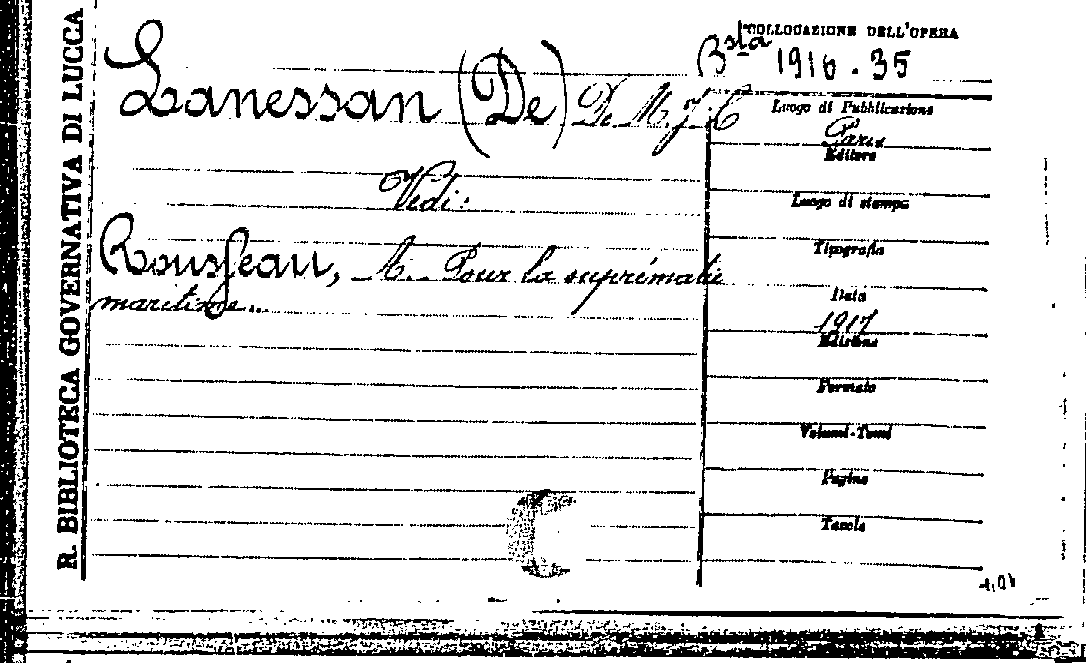 R. BIBLIOTECA GOVERNATIVA DI LUCCA
Lanessan (De) De M. J. C
Vedi:
Rousseau, A. Pour la suprématie
maritime...
COLLOCAZIONE DELL'OPERA
Bsta 1916.35
Luogo di Pubblicazione
Paris
Editore
Luogo di stampa
Tipografia
Data
1917
Edizione
Formato
Volumi-Tomi
Pagine
Tavole